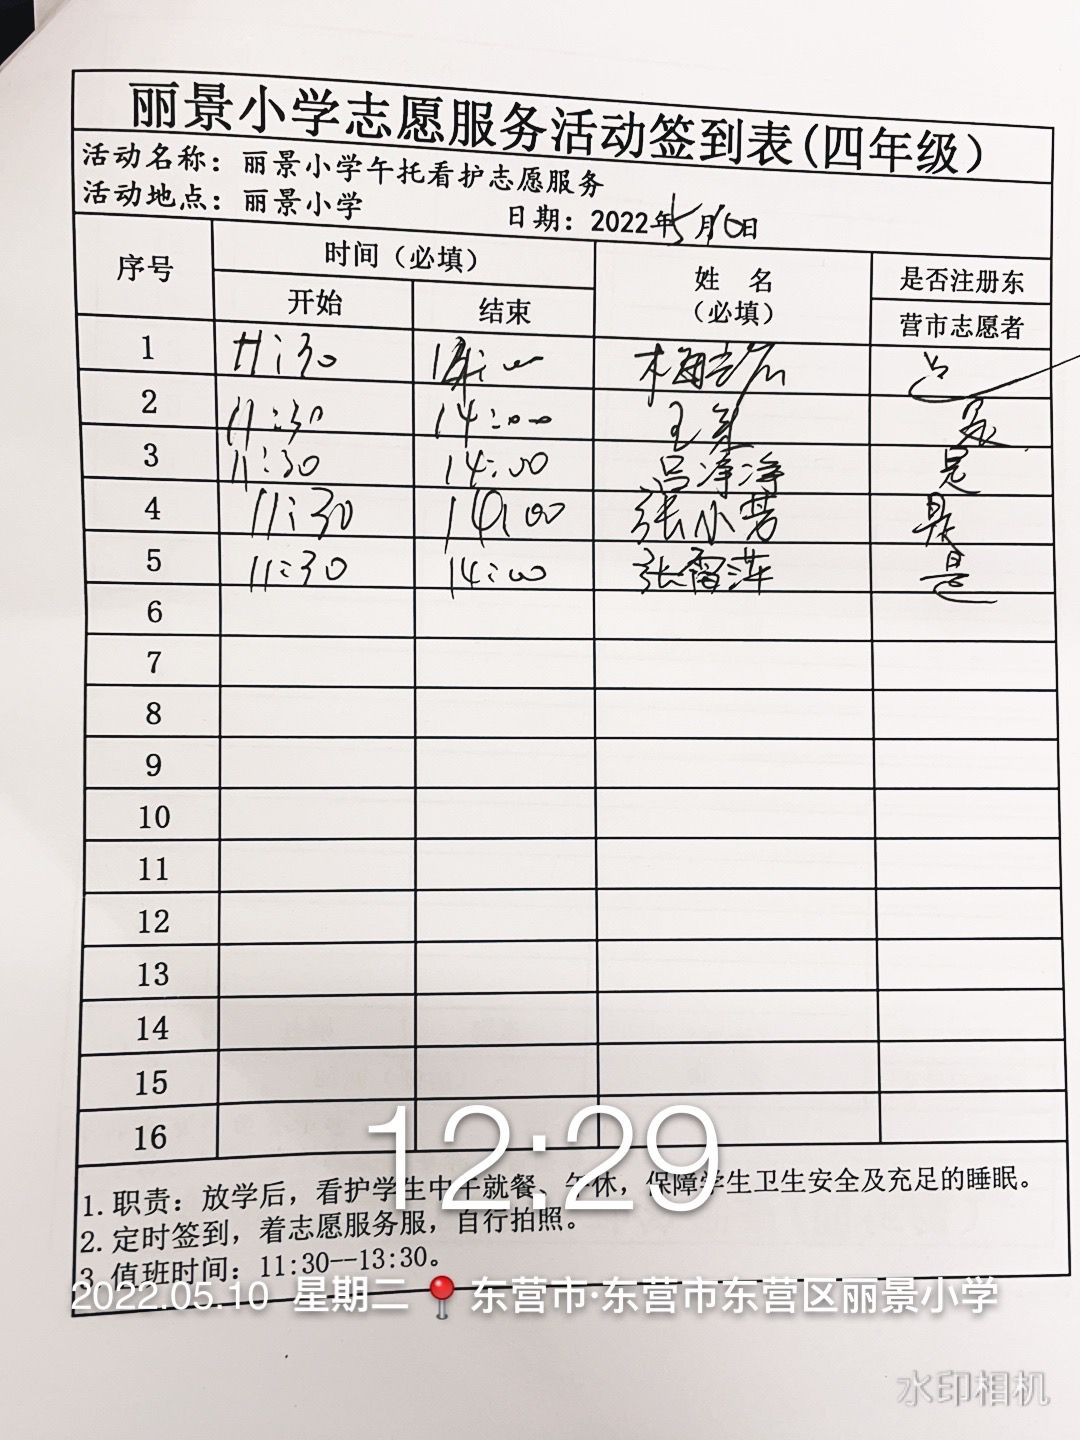 丽景小学志愿服务活动签到表(四年级)
活动名称：丽景小学午托看护志愿服务
活动地点：丽景小学 日期：2022年5月10日
序号 时间（必填） 姓名（必填） 是否注册东营市志愿者
开始 结束
1 11:30
2 11:30 14:00 王 是
3 11:30 14:00 吕净净 是
4 11:30 14:00 张小芳 是
5 11:30 14:00 张雪萍 是
6
7
8
9
10
11
12
13
14
15
16
1.职责：放学后，看护学生中午就餐、午休，保障学生卫生安全及充足的睡眠。
2.定时签到，着志愿服务服，自行拍照。
3.值班时间：11:30--13:30。
12:29
2022.05.10 星期二 东营市·东营市东营区丽景小学
水印相机